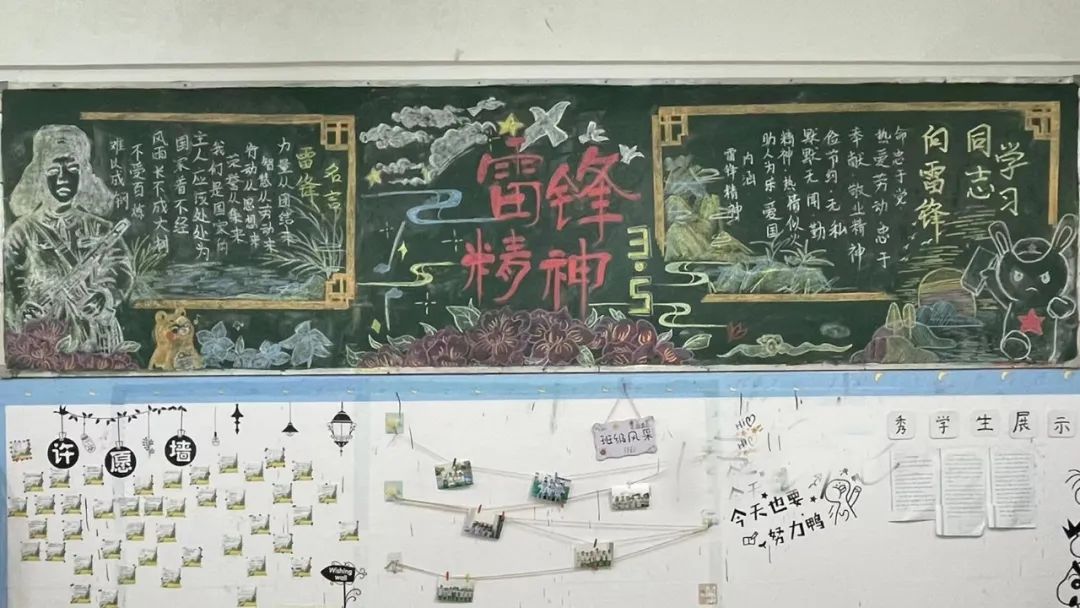 名言
雷锋
力量从团结来
智慧从劳动来
行动从思想来
荣誉从集来
我们是国家的
主人应该处处为
国家着不经
风雨长不成大树
不受百炼
难以成钢
雷锋
精神
3.5
雷锋精神
内涵
助人为乐 爱国
精神·热情似火
默默无闻 勤
俭节约·无私
奉献 敬业精神
热爱劳动 忠于
命忠于党
向雷锋
同志
学习
许愿墙
Wishing wall
班级风采
今天也要
努力鸭
秀学生展示